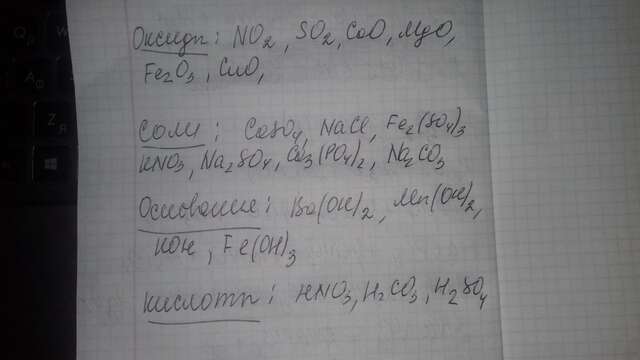 Оксиды: NO2, SO2, CaO, MgO,
Fe2O3, CuO,
Соли: CaSO4, NaCl, Fe2(SO4)3
KNO3, Na2SO4, Ca3(PO4)2, Na2CO3
Основание: Ba(OH)2, Mn(OH)2,
KOH, Fe(OH)3
Кислоты: HNO3, H2CO3, H2SO4